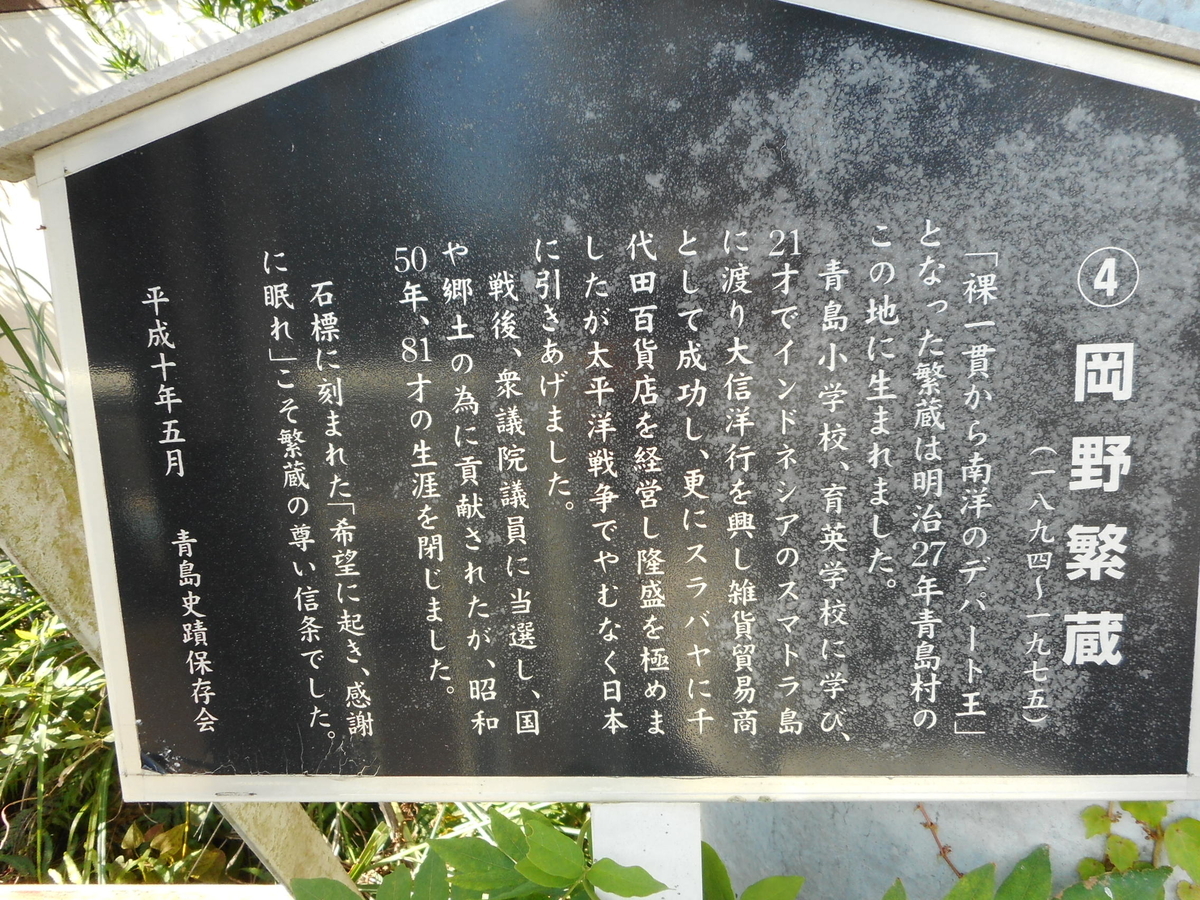 ④ 岡野繁蔵
(一八九四〜一九七五)
「裸一貫から南洋のデパート王」
となった繁蔵は明治27年青島村の
この地に生まれました。
青島小学校、育英学校に学び、
21才でインドネシアのスマトラ島
に渡り大信洋行を興し雑貨貿易商
として成功し、更にスラバヤに千
代田百貨店を経営し隆盛を極めま
したが太平洋戦争でやむなく日本
に引きあげました。
戦後、衆議院議員に当選し、国
や郷土の為に貢献されたが、昭和
50年、81才の生涯を閉じました。
石標に刻まれた「希望に起き、感謝
に眠れ」こそ繁蔵の尊い信条でした。
平成十年五月
青島史蹟保存会